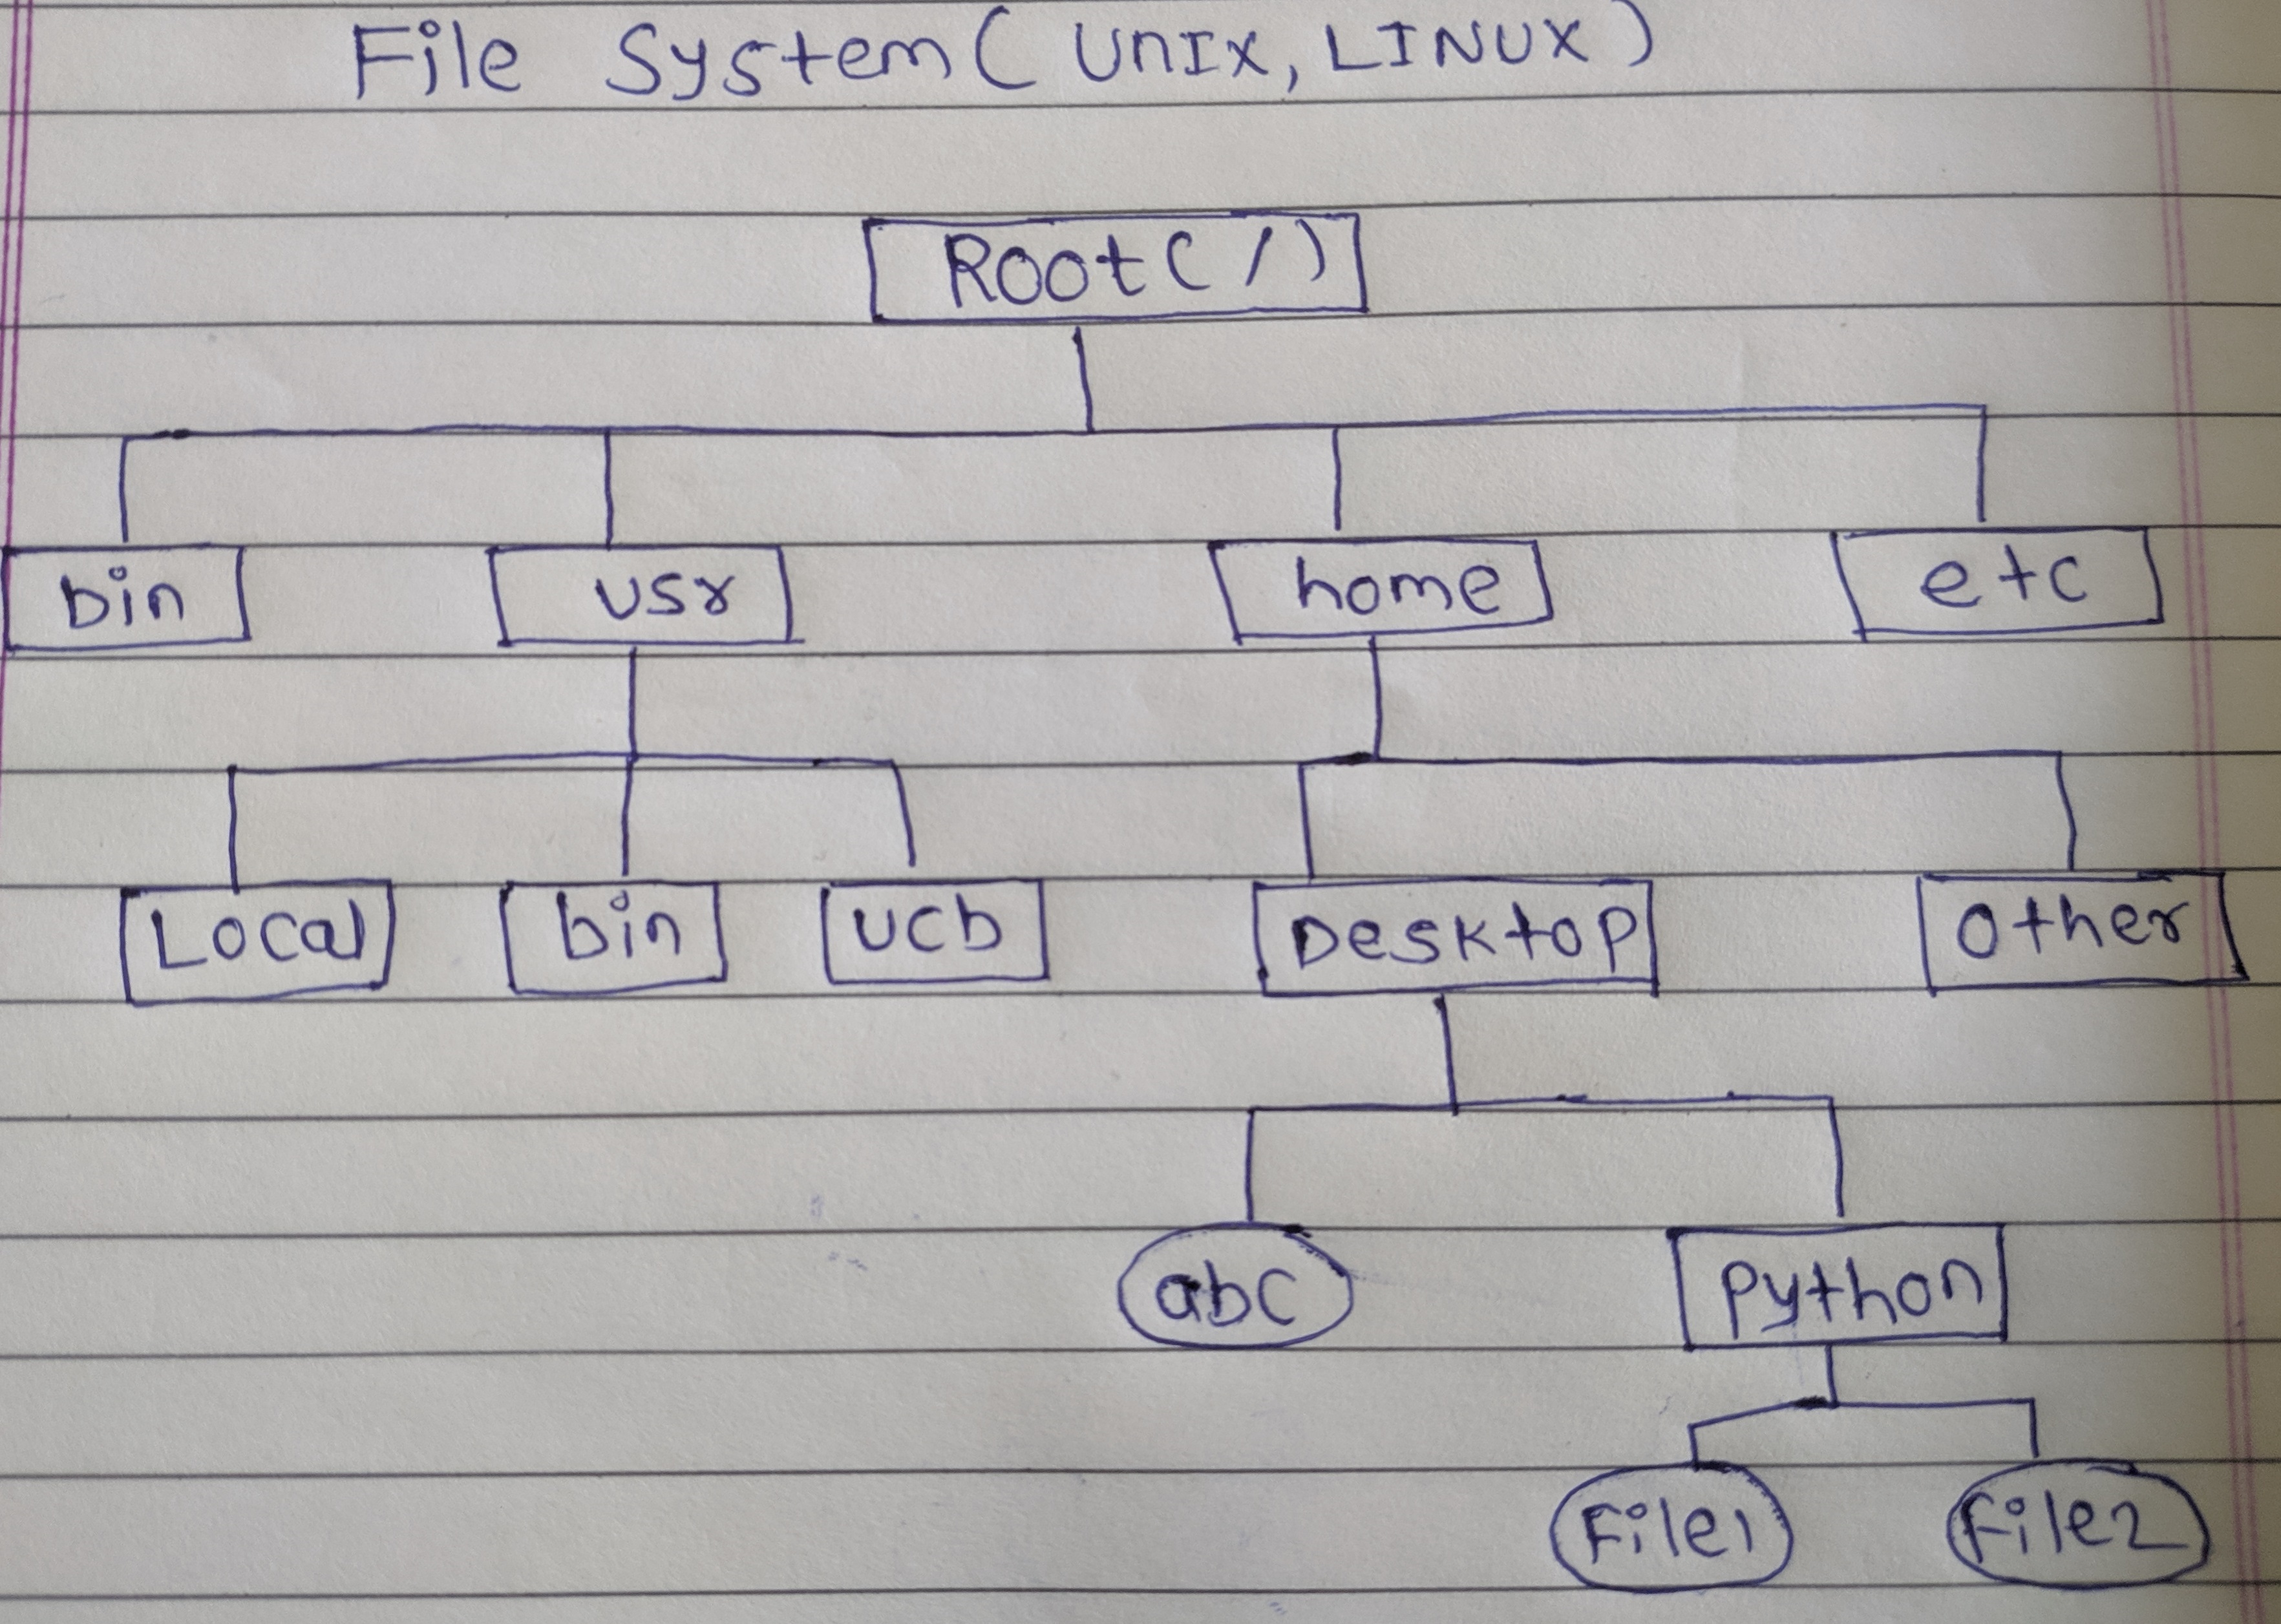 File System ( UnIX, LINUX )
Root ( / )
bin usr home etc
Local bin ucb Desktop Other
abc Python
File1 File2